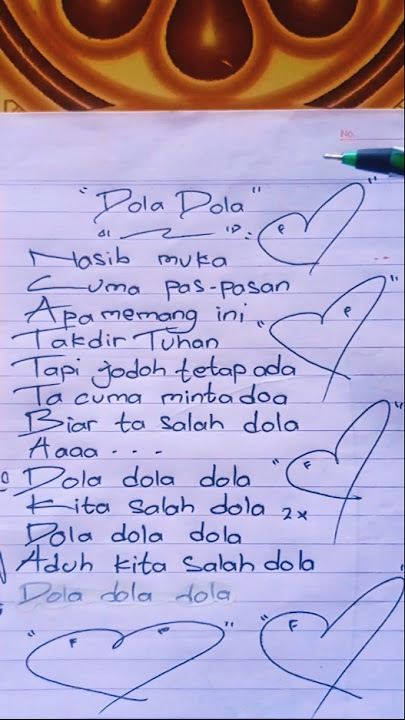 No.
"Dola Dola"
Nasib muka
Cuma pas-pasan
Apa memang ini
Takdir Tuhan
Tapi jodoh tetap ada
Ta cuma minta doa
Biar ta salah dola
Aaaa . . .
Dola dola dola
Kita salah dola 2x
Dola dola dola
Aduh kita salah dola
Dola dola dola